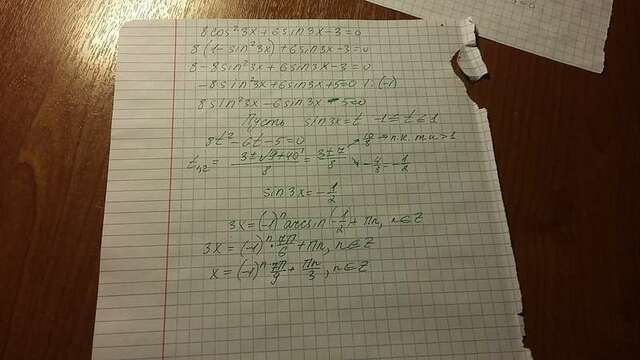 8cos²3x+6sin3x-3=0
8(1-sin²3x)+6sin3x-3=0
8-8sin²3x+6sin3x-3=0
-8sin²3x+6sin3x+5=0 |:(-1)
8sin²3x-6sin3x-5=0
Пусть sin3x=t -1≤t≤1
8t²-6t-5=0
t₁,₂ = (3±√(9+40))/8 = (3±7)/8 10/8 → п.к. т и >1
-4/8=-1/2
sin3x=-1/2
3x=(-1)ⁿarcsin(-1/2)+πn, n∈Z
3x=(-1)ⁿ·7π/6+πn, n∈Z
x=(-1)ⁿ 7π/9+πn/3, n∈Z